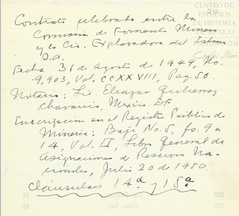 Contrato celebrado entre la
Comisión de Fomento Minero
y la Cía. Exploradora del
S.A.
Fecha 31 de agosto de 1949, No.
9,903, Vol. CCXXVIII, Pag. 50.
Notario: Lic. Eleazar Gutierrez
Chavarria, Mexico. D.F.
Inscripcion en el Registro Publico de
Mineria: Bajo No. 5, fs. 9 a
14, Vol. II, Libro General de
Asignaciones de Reservas Na-
cionales, Julio 20 de 1950
Clausulas 14a y 15a
CENTRO DE
ESTUDIOS
DE HISTORIA